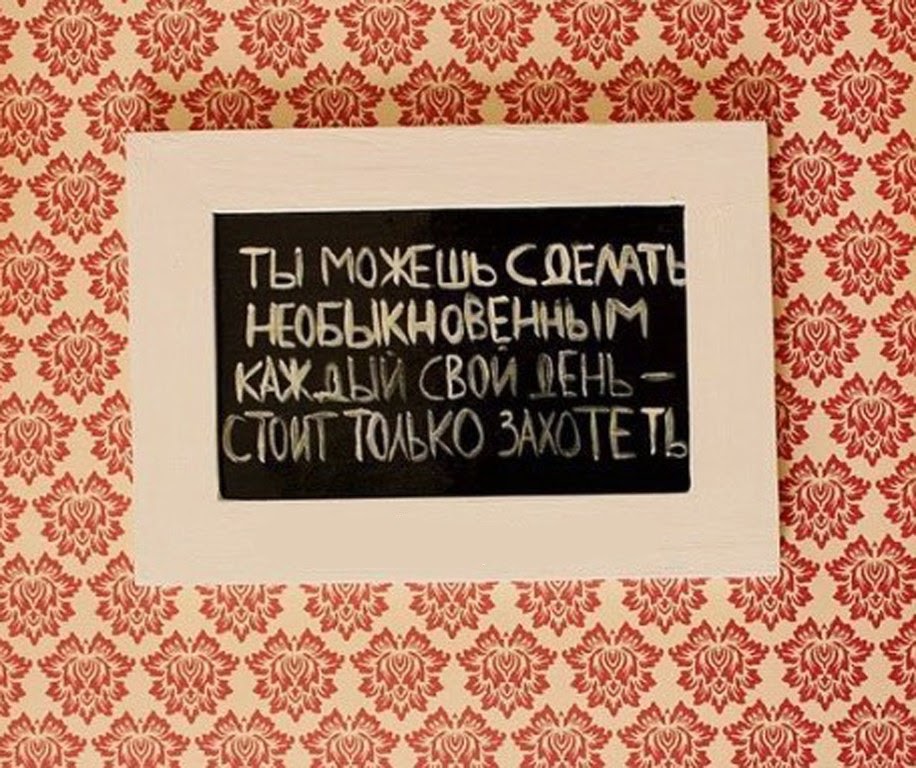 ТЫ МОЖЕШЬ СДЕЛАТЬ
НЕОБЫКНОВЕННЫМ
КАЖДЫЙ СВОЙ ДЕНЬ –
СТОИТ ТОЛЬКО ЗАХОТЕТЬ